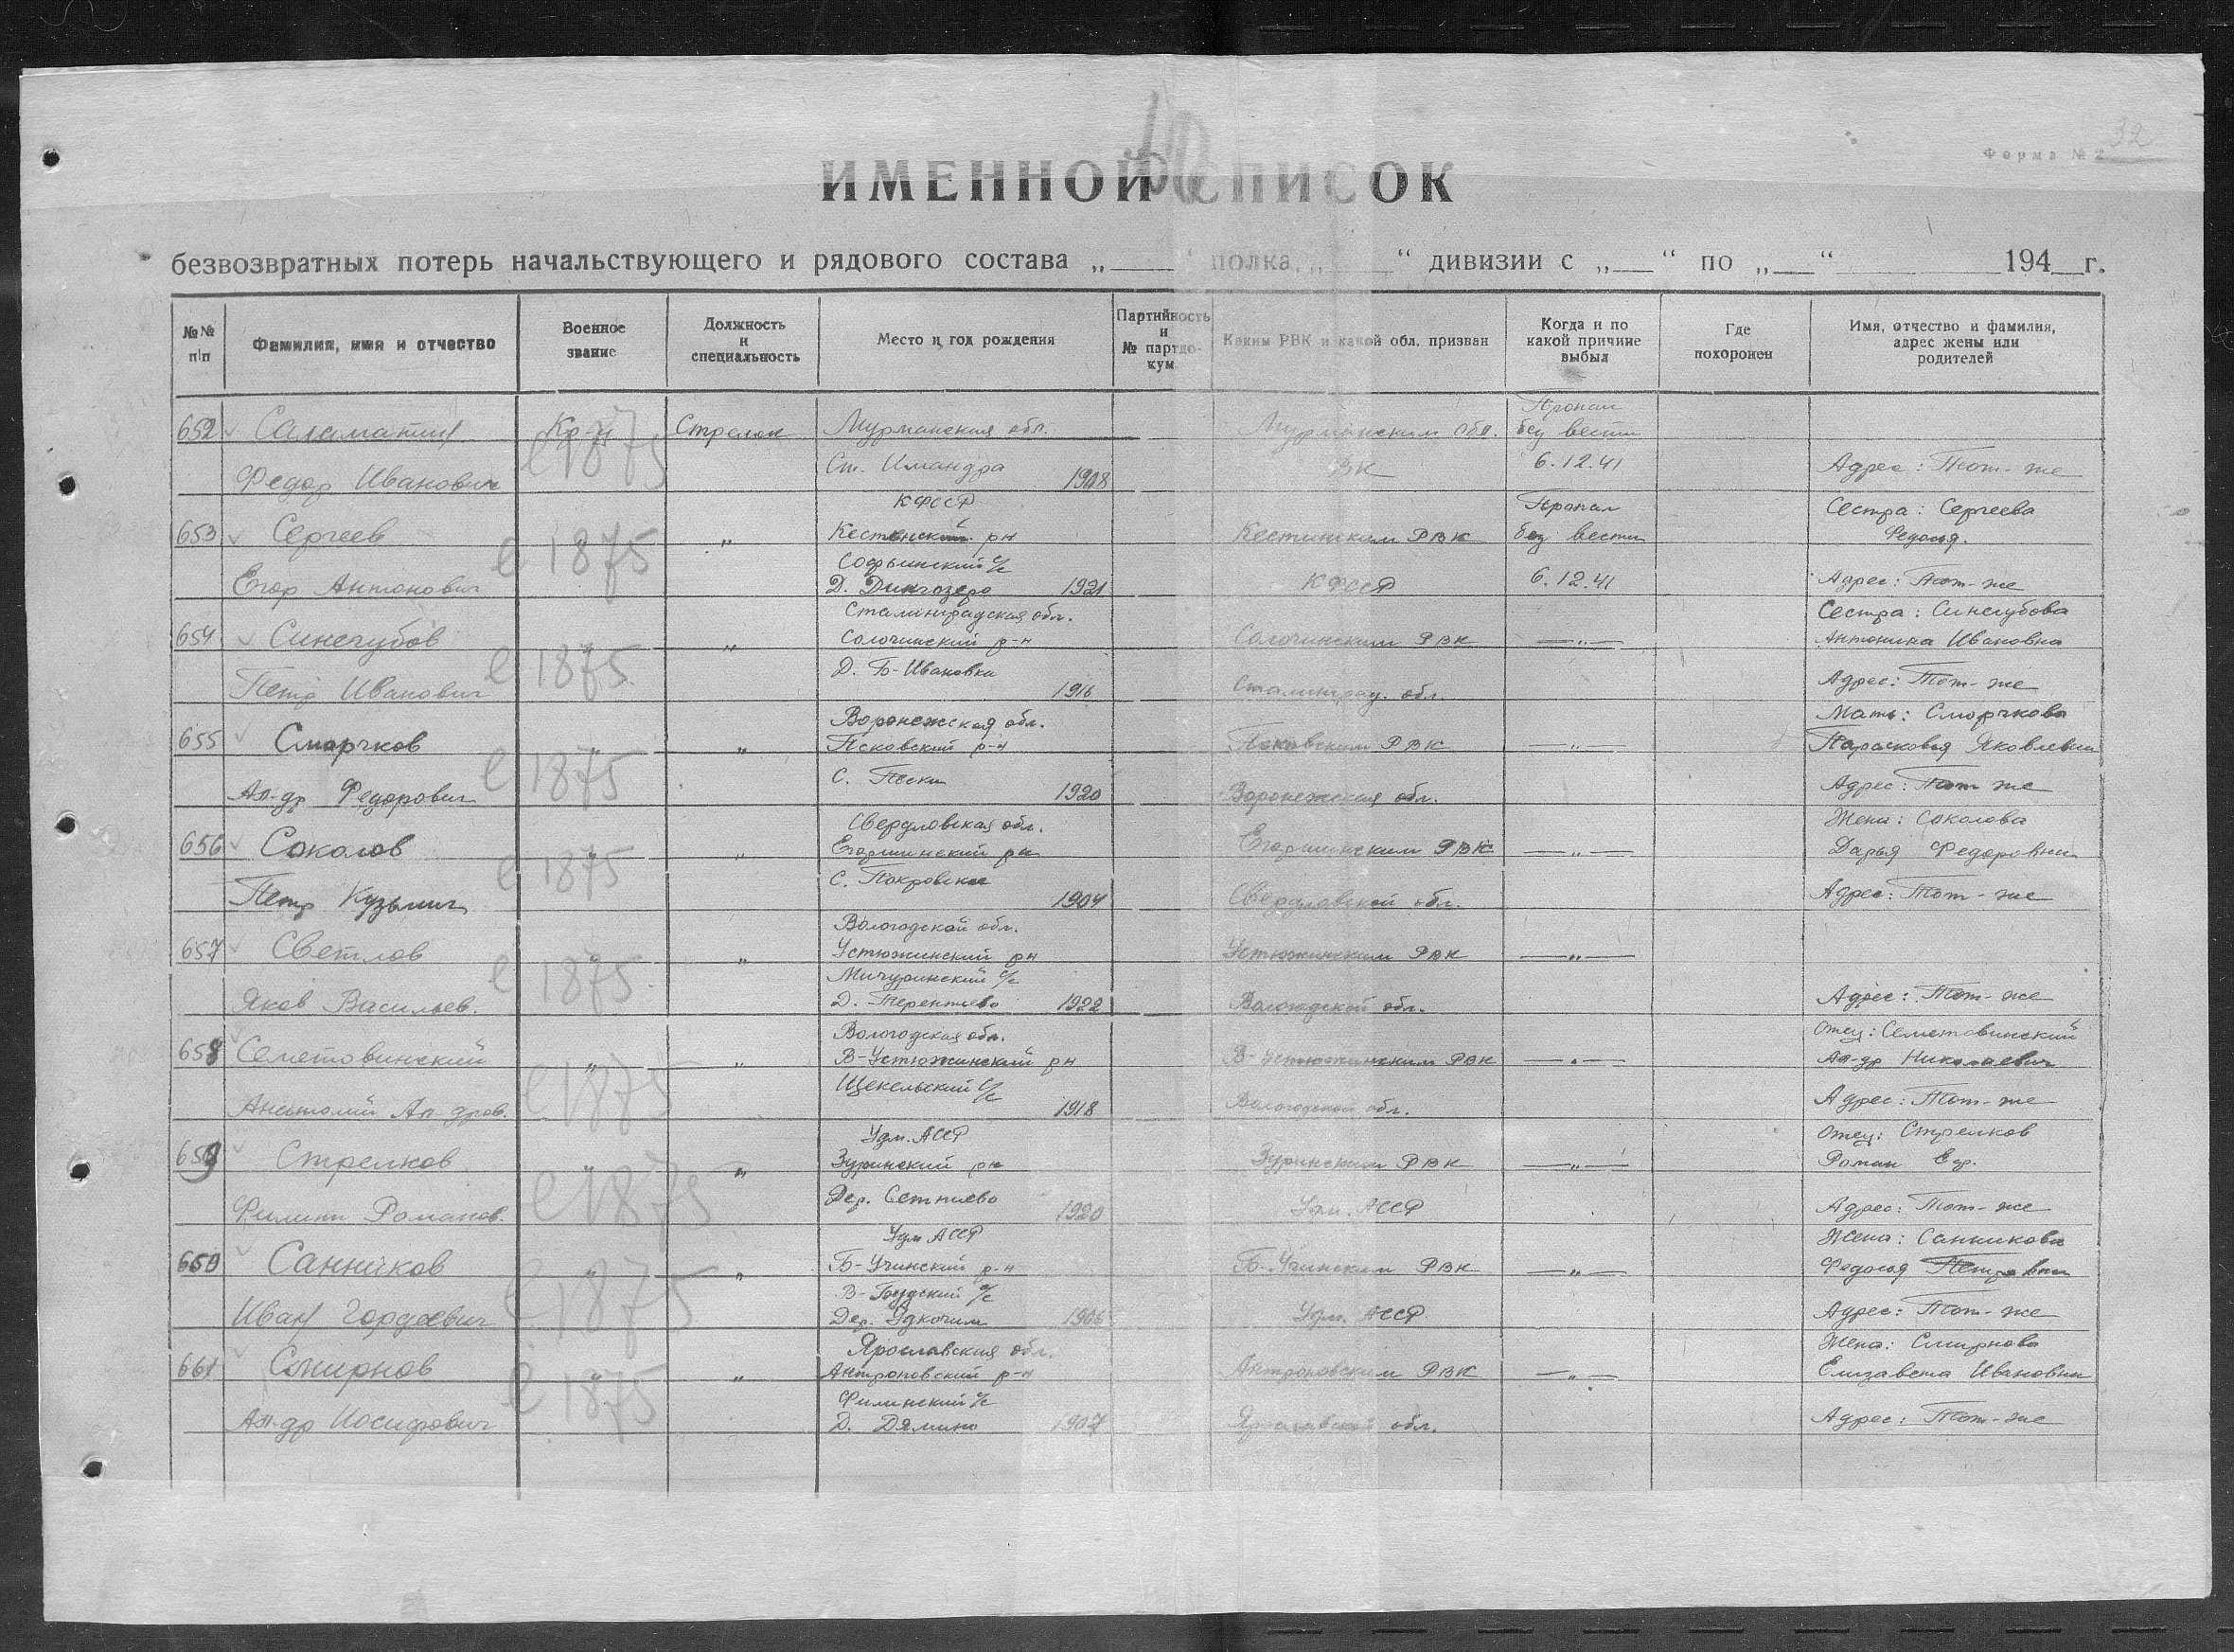 32
Форма № 2
ИМЕННОЙ СПИСОК
безвозвратных потерь начальствующего и рядового состава „ “ полка, „ “ дивизии с „ “ по „ “ 194 г.
№№ п|п
Фамилия, имя и отчество
Военное звание
Должность и специальность
Место и год рождения
Партийность и № партдокум
Каким РВК и какой обл. призван
Когда и по какой причине выбыл
Где похоронен
Имя, отчество и фамилия, адрес жены или родителей
652 Саламатин Кр-ц Стрелок Мурманская обл. Мурманским обл. Пропал без вести
Федор Иванович 1875 Ст. Имандра 1908 ВК 6.12.41 Адрес: Тот-же
КФССР Пропал Сестра: Сергеева
653 Сергеев 1875 „ Кестенский рн Кестинским РВК без вести Федосья.
Софьинский с/с
Егор Антонович Д. Динчозеро 1921 КФССР 6.12.41 Адрес: Тот-же
Сталинградская обл. Сестра: Синегубова
654 Синегубов „ „ Солочинский р-н Солочинским РВК —„— Антонина Ивановна
1875 Д. Б-Ивановка
Петр Иванович 1916 Сталинград. обл. Адрес: Тот-же
Воронежская обл. Мать: Сморчкова
655 Сморчков „ „ Псковский р-н РВК —„— Парасковья Яковлевна
1875 С. Пески
Ал-др Федорович 1920 Воронежская обл. Адрес: Тот же
Свердловская обл. Жена: Соколова
656 Соколов „ „ Егоршинский рн Егоршинским РВК —„— Дарья Федоровна
1875 С. Покровское
Петр Кузьмич 1904 Свердловской обл. Адрес: Тот-же
Вологодской обл.
657 Светлов „ „ Устюжинский рн Устюжинским РВК —„—
1875 Мичуринский с/с
Яков Васильев. Д. Терентьево 1922 Вологодской обл. Адрес: Тот-же
Вологодская обл. Отец: Семетовинский
658 Семетовинский „ „ В-Устюжинский рн В-Устюжинским РВК —„— Ал-др Николаевич
1875 Щекельский с/с
Анатолий Ал-дров. 1918 Вологодской обл. Адрес: Тот-же
Удм. АССР Отец: Стрелков
659 Стрелков „ „ Зуринский рн Зуринским РВК —„— Роман Ег.
1875 Дер. Сетпиево
Филипп Романов. 1920 Удм. АССР Адрес: Тот-же
Удм АССР Жена: Санникова
660 Санников „ „ Б-Учинский р-н Б-Учинским РВК —„— Федосья Петровна
1875 с/с
Иван Гордеевич Дер. 1906 Удм. АССР Адрес: Тот-же
Ярославская обл. Жена: Смирнова
661 Смирнов „ Антроповский р-н Антроповским РВК —„— Елизавета Ивановна
1875 Филинский с/с
Ал-др Иосифович Д. Дямино 1907 Ярославской обл. Адрес: Тот-же